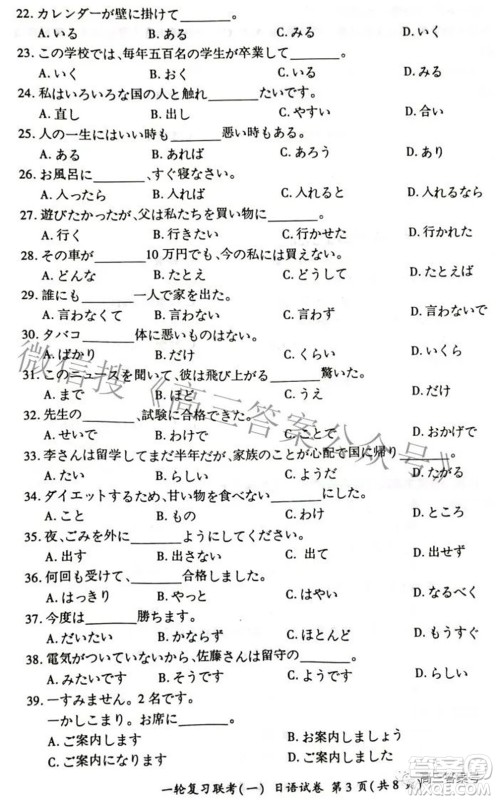 22. カレンダーが壁に掛けて________。
A. いる B. ある C. みる D. いく
23. この学校では、毎年五百名の学生が卒業して________。
A. いく B. おく C. いる D. みる
24. 私はいろいろな国の人と触れ________たいです。
A. 直し B. 出し C. やすい D. 合い
25. 人の一生にはいい時も________悪い時もある。
A. ある B. あれば C. あろう D. あり
26. お風呂に________、すぐ寝なさい。
A. 入ったら B. 入れば C. 入れると D. 入れるなら
27. 遊びたかったが、父は私たちを買い物に________。
A. 行く B. 行きたい C. 行かせた D. 行けた
28. その車が________10万円でも、今の私には買えない。
A. どんな B. たとえ C. どうして D. たくさん
29. 誰にも________一人で家を出た。
A. 言わなくて B. 言わない C. 言わず D. 言わないで
30. タバコ________体に悪いものはない。
A. ばかり B. だけ C. くらい D. いくら
31. このニュースを聞いて、彼は飛び上がる________驚いた。
A. まで B. ほど C. うえ D. だけ
32. 先生の________、試験に合格できた。
A. せいで B. わけで C. ことで D. おかげで
33. 李さんは留学してまだ半年だが、家族のことが心配で国に帰り________。
A. たい B. らしい C. ようだ D. たがる
34. ダイエットするため、甘い物を食べない________にした。
A. こと B. もの C. わけ D. ところ
35. 夜、ごみを外に________ようにしてください。
A. 出す B. 出さない C. 出て D. 出た
36. 何回も受けて、________合格しました。
A. はっきり B. やっと C. はやい D. なるべく
37. 今度は________勝ちます。
A. だいたい B. かならず C. ほとんど D. すっかり
38. 電気がついていないから、佐藤さんは留守の________。
A. みたいです B. そうです C. らしいです D. ようです
39. ーすみません。2名です。
ーかしこまり。お席に________。
A. ご案内します B. ご案内しましょう
C. ご案内になります D. ご案内なさいます
一轮复习联考(一) 日语试卷 第3页(共8
微信搜《高三答案公众号》
高三答案号